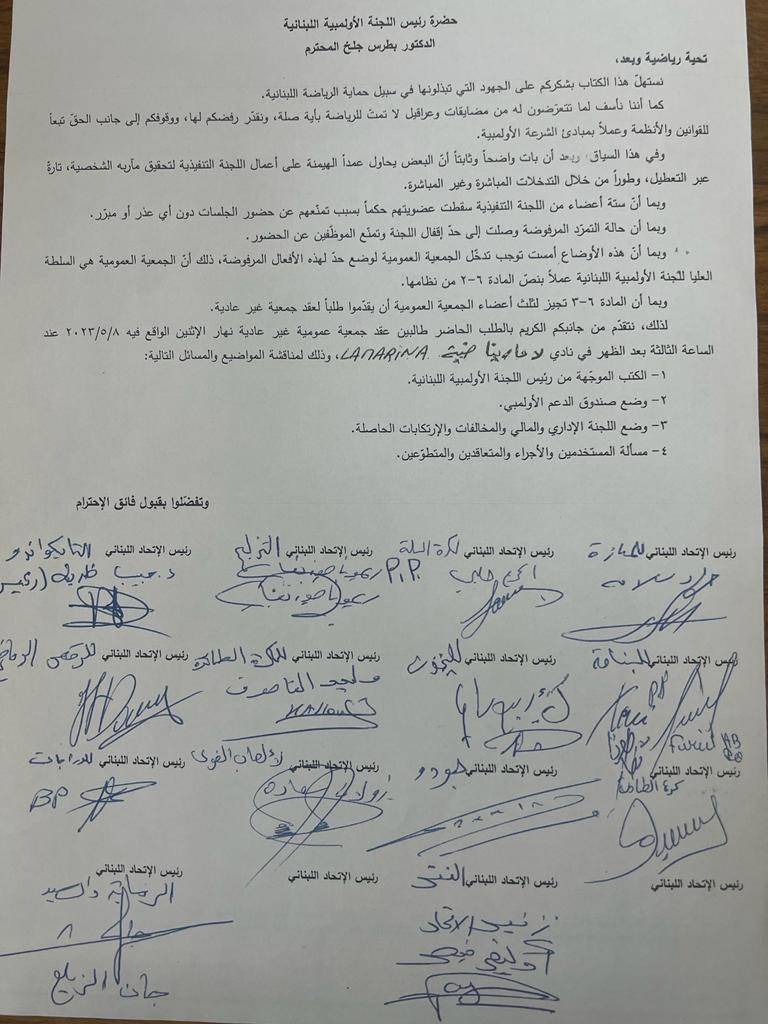 حضرة رئيس اللجنة الأولمبية اللبنانية
الدكتور بطرس جلخ المحترم
تحية رياضية وبعد،
نستهلّ هذا الكتاب بشكركم على الجهود التي تبذلونها في سبيل حماية الرياضة اللبنانية.
كما أننا نأسف لما تتعرّضون له من مضايقات وعراقيل لا تمتّ للرياضة بأية صلة، ونقدّر رفضكم لها، ووقوفكم إلى جانب الحقّ تبعاً
للقوانين والأنظمة وعملاً بمبادئ الشرعة الأولمبية.
وفي هذا السياق، وبعد أن بات واضحاً وثابتاً أنّ البعض يحاول عمداً الهيمنة على أعمال اللجنة التنفيذية لتحقيق مآربه الشخصية، تارةً
عبر التعطيل، وطوراً من خلال التدخلات المباشرة وغير المباشرة.
وبما أنّ ستة أعضاء من اللجنة التنفيذية سقطت عضويتهم حكماً بسبب تمنّعهم عن حضور الجلسات دون أي عذر أو مبرّر.
وبما أن حالة التمرّد المرفوضة وصلت إلى حدّ إقفال اللجنة وتمنّع الموظّفين عن الحضور.
وبما أنّ هذه الأوضاع أمست توجب تدخّل الجمعية العمومية لوضع حدّ لهذه الأفعال المرفوضة، ذلك أنّ الجمعية العمومية هي السلطة
العليا للّجنة الأولمبية اللبنانية عملاً بنصّ المادة ٦-٢ من نظامها.
وبما أن المادة ٦-٣ تجيز لثلث أعضاء الجمعية العمومية أن يقدّموا طلباً لعقد جمعية غير عادية.
لذلك، نتقدّم من جانبكم الكريم بالطلب الحاضر طالبين عقد جمعية عمومية غير عادية نهار الإثنين الواقع فيه ٢٠٢٣/٥/٨ عند
الساعة الثالثة بعد الظهر في نادي لامارينا ضبية LAMARINA، وذلك لمناقشة المواضيع والمسائل التالية:
١- الكتب الموجّهة من رئيس اللجنة الأولمبية اللبنانية.
٢- وضع صندوق الدعم الأولمبي.
٣- وضع اللجنة الإداري والمالي والمخالفات والإرتكابات الحاصلة.
٤- مسألة المستخدمين والأجراء والمتعاقدين والمتطوّعين.
وتفضّلوا بقبول فائق الإحترام
رئيس الإتحاد اللبناني للمبارزة
رئيس الإتحاد اللبناني لكرة السلة
رئيس الإتحاد اللبناني التزلج
رئيس الإتحاد اللبناني التايكواندو
اكرم حلبي
P.P.
رئيس الإتحاد اللبناني
رئيس الإتحاد اللبناني لليخوت
رئيس الإتحاد اللبناني للكرة الطائرة
رئيس الإتحاد اللبناني للرقص الرياضي
رئيس الإتحاد اللبناني كرة الطاولة
رئيس الإتحاد اللبناني جودو
رئيس الإتحاد اللبناني لألعاب القوى
رئيس الإتحاد اللبناني للدراجات
BP
رئيس الإتحاد اللبناني
رئيس الإتحاد اللبناني
رئيس الإتحاد اللبناني
رئيس الإتحاد اللبناني
الرماية والصيد
جان